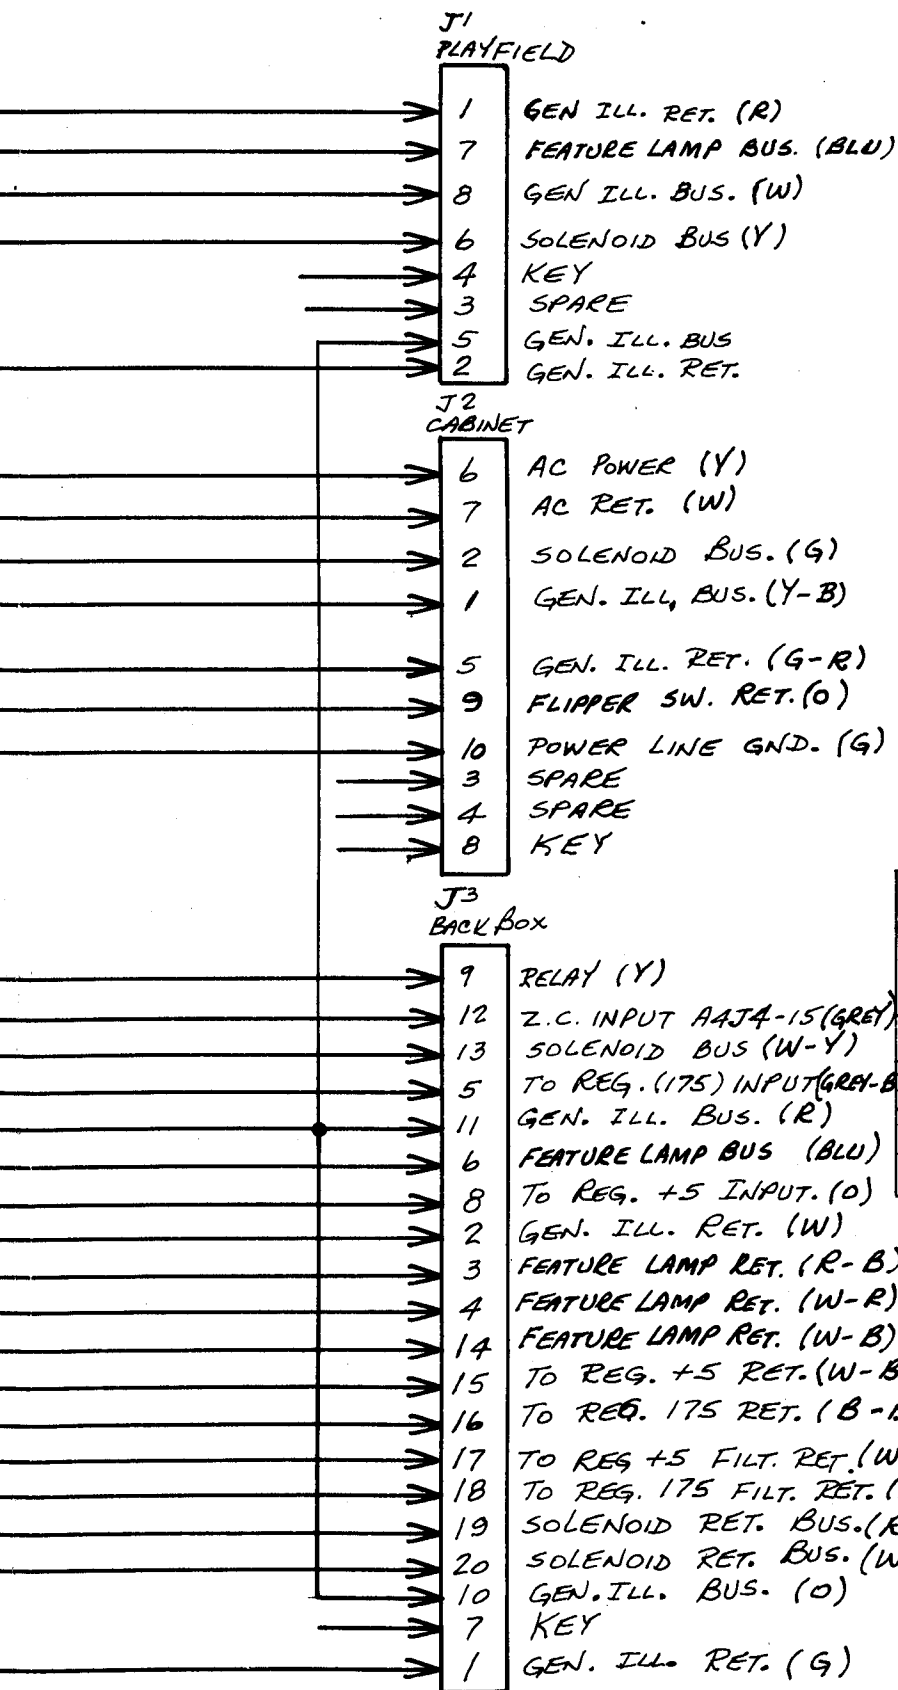 J1
PLAYFIELD
1 GEN ILL. RET. (R)
7 FEATURE LAMP BUS. (BLU)
8 GEN ILL. BUS. (W)
6 SOLENOID BUS (Y)
4 KEY
3 SPARE
5 GEN. ILL. BUS
2 GEN. ILL. RET.
J2
CABINET
6 AC POWER (Y)
7 AC RET. (W)
2 SOLENOID BUS. (G)
1 GEN. ILL, BUS. (Y-B)
5 GEN. ILL. RET. (G-R)
9 FLIPPER SW. RET. (O)
10 POWER LINE GND. (G)
3 SPARE
4 SPARE
8 KEY
J3
BACK BOX
9 RELAY (Y)
12 Z.C. INPUT A4J4-15 (GREY)
13 SOLENOID BUS (W-Y)
5 TO REG. (175) INPUT (GREY-B
11 GEN. ILL. BUS. (R)
6 FEATURE LAMP BUS (BLU)
8 TO REG. +5 INPUT. (O)
2 GEN. ILL. RET. (W)
3 FEATURE LAMP RET. (R-B)
4 FEATURE LAMP RET. (W-R)
14 FEATURE LAMP RET. (W-B)
15 TO REG. +5 RET. (W-B
16 TO REG. 175 RET. (B-
17 TO REG +5 FILT. RET. (W
18 TO REG. 175 FILT. RET. (
19 SOLENOID RET. BUS. (R
20 SOLENOID RET. BUS. (W
10 GEN. ILL. BUS. (O)
7 KEY
1 GEN. ILL. RET. (G)